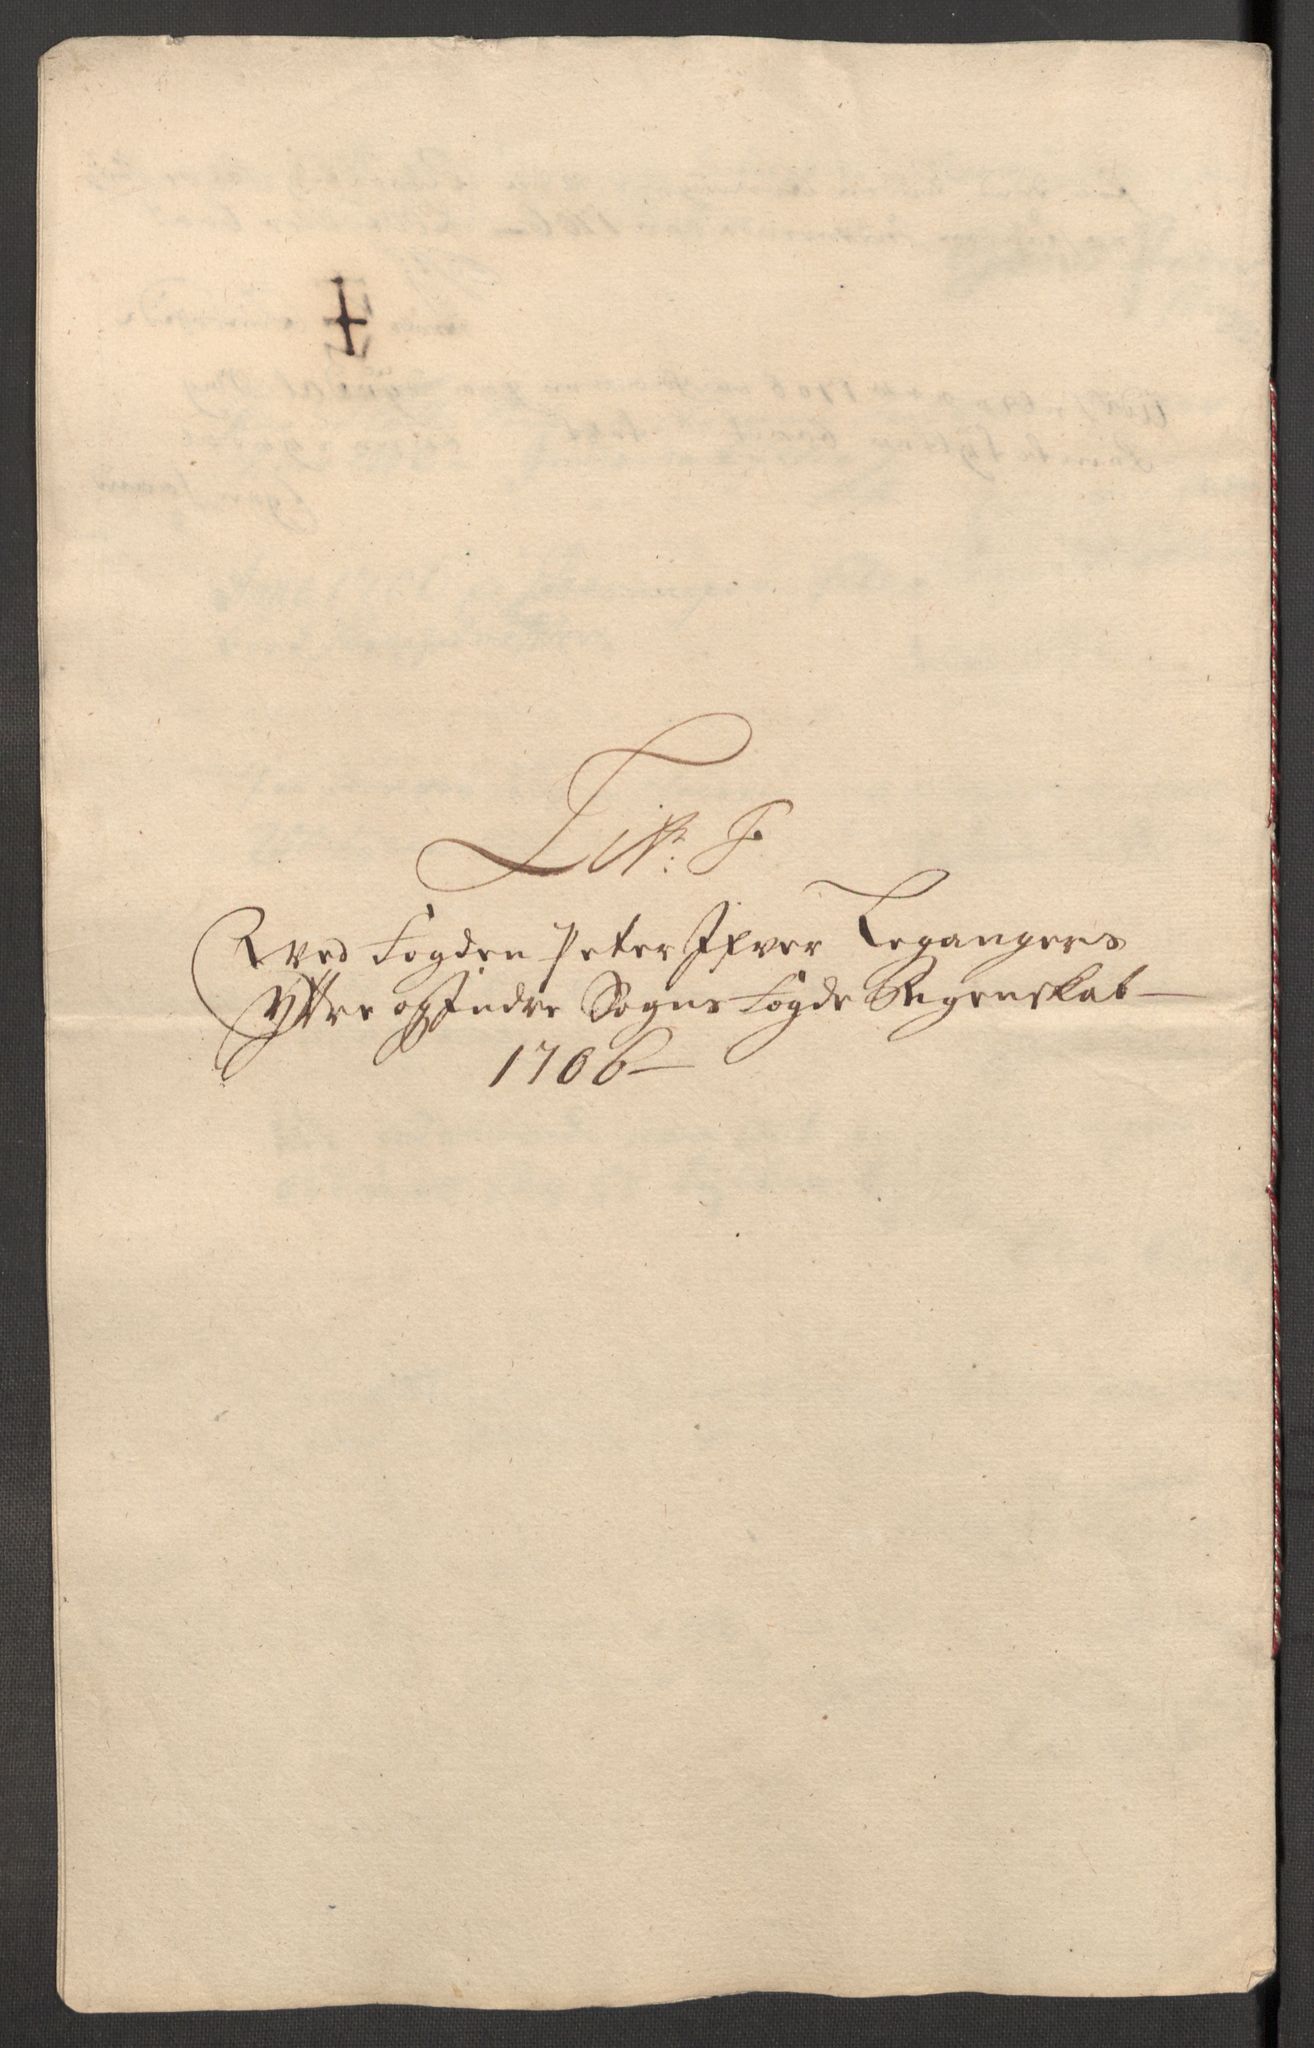 4
Litr: F
Ved Fogden Peter Ifver Legangers
Yttre og Indre Sogns Fogde Regenskab
1706